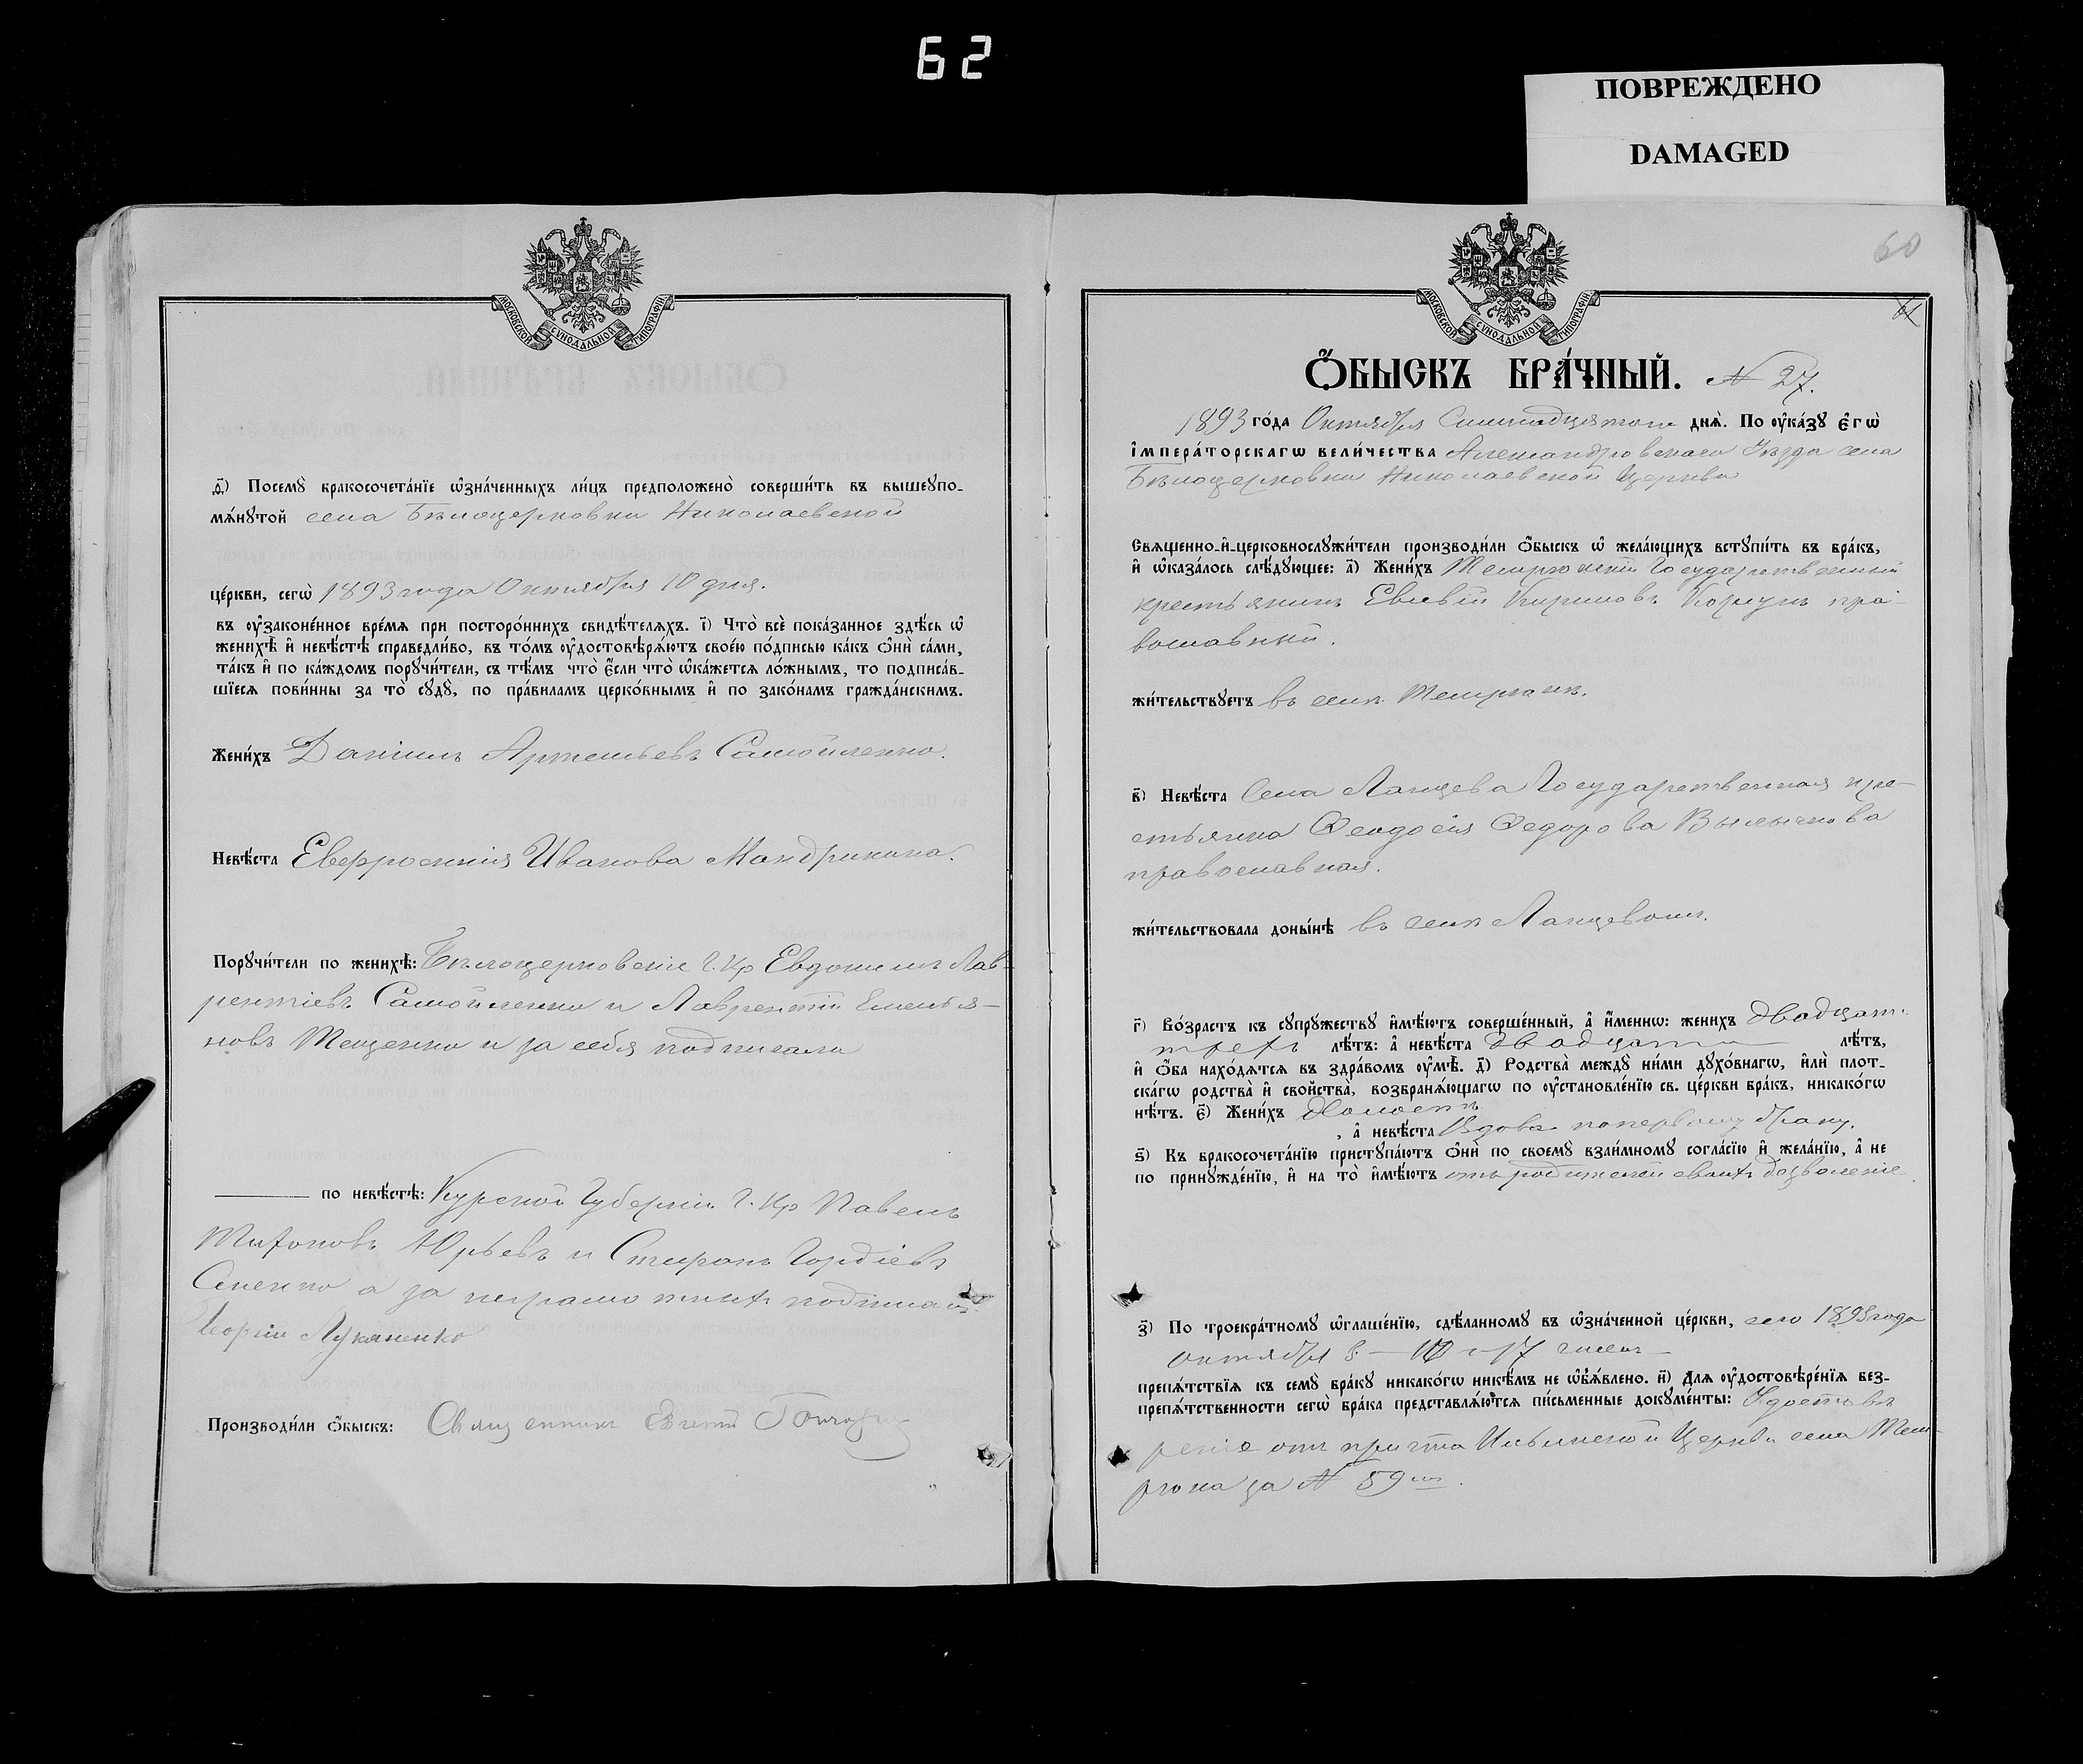 62
ПОВРЕЖДЕНО
DAMAGED
МОСКОВСКОЙ СѴНОДАЛЬНОЙ ТИПОГРАФІИ
д҃) Посемꙋ̀ бракосочета́нїе ѡ҆зна́ченныхъ ли́цъ предположено̀ соверши́ть въ вышеупо-
мѧ́нꙋтой села Бѣлоцерковки Николаевской
це́ркви, сегѡ̀ 1893 года Октября 10 дня.
въ ѹ҆законе́нное вре́мѧ при посторо́ннихъ свидѣ́телѧхъ. і҃) Что̀ всѐ пока́занное здѣ́сь ѡ҆
женихѣ̀ и҆ невѣ́стѣ справедли́во, въ то́мъ ѹ҆достовѣрѧ́ютъ свое́ю по́дписью ка́къ ѻ҆нѝ са́ми,
та́къ и҆ по ка́ждомъ порꙋчи́тели, съ тѣ́мъ что̀ є҆́сли что̀ ѡ҆ка́жетсѧ ло́жнымъ, то подписа́в-
шїесѧ пови́нны за то̀ сꙋдꙋ̀, по пра́виламъ церко́внымъ и҆ по зако́намъ гражда́нскимъ.
Жени́хъ Даніилъ Артемьевъ Самойленко.
Невѣ́ста Евфросинія Иванова Мандрикина.
Порꙋчи́тели по женихѣ̀: Бѣлоцерковскіе Г. Кр Евдокимъ Лав-
рентіевъ Самойленко и Лаврентій Емелья-
новъ Тещенко и за себя подписали
по невѣ́стѣ: Курской Губерніи Г. Кр Павелъ
Тихоновъ Юрьевъ и Спиронъ Гордіевъ
а за неграмотныхъ подписал
Георгій Луканенко
Производи́ли ѻ҆́быскъ: Священникъ Евгеній
60
МОСКОВСКОЙ СѴНОДАЛЬНОЙ ТИПОГРАФІИ
Ѻ҆́БЫСКЪ БРА́ЧНЫЙ. № 27.
1893 го́да Октября Семнадцятого днѧ̀. По ѹ҆ка́зꙋ є҆гѡ̀
і҆мпера́торскагѡ вели́чества Александровского Уѣзда села
Бѣлоцерковки Николаевской Церкви
Свѧщенно-и҆-церковнослꙋжи́тели производи́ли ѻ҆́быскъ ѡ҆ жела́ющихъ встꙋпи́ть въ бра́къ,
и҆ ѡ҆каза́лось слѣ́дꙋющее: а҃) Жени́хъ Темрюкскій Государственный
крестьянинъ Евсевій Кириловъ Коржунъ пра-
вославный.
жи́тельствꙋетъ въ селѣ Темрюкѣ.
в҃) Невѣ́ста Села Ланцева Государственная кре-
стьянка Ѳеодосія Ѳедорова
православная.
жи́тельствовала доны́нѣ въ селѣ Ланцевомъ.
г҃) Во́зрастъ къ сꙋпрꙋ́жествꙋ и҆мѣ́ютъ соверше́нный, а҆ и҆́меннѡ: жени́хъ двадцат.
трехъ лѣ́тъ: а҆ невѣ́ста двадцати лѣ́тъ,
и҆ ѻ҆́ба нахо́дѧтсѧ въ здра́вомъ ѹ҆мѣ̀. д҃) Родства̀ междꙋ̀ ни́ми дꙋхо́внагѡ, и҆лѝ плот-
ска́гѡ родства̀ и҆ свойства̀, возбранѧ́ющагѡ по ѹ҆становле́нїю св. це́ркви бра́къ, никако́гѡ
нѣ́тъ. є҃) Жени́хъ Холостъ
, а҆ невѣ́ста Вдова по первому браку.
ѕ҃) Къ бракосочета́нїю пристꙋпа́ютъ ѻ҆нѝ по своемꙋ̀ взаи́мномꙋ согла́сїю и҆ жела́нїю, а҆ не
по принꙋжде́нїю, и҆ на то̀ и҆мѣ́ютъ отъ родителей своихъ дозволеніе.
з҃) По троекра́тномꙋ ѡ҆глаше́нїю, сдѣ́ланномꙋ въ ѡ҆зна́ченной це́ркви, сего 1893 года
октября 8 – 10 и 17 чиселъ
препѧ́тствїѧ къ семꙋ̀ бра́кꙋ никако́гѡ никѣ́мъ не ѡ҆б̾ѧ́влено. и҃) Длѧ ѹ҆достовѣре́нїѧ без-
препѧ́тственности сегѡ̀ бра́ка представлѧ́ютсѧ пи́сьменные докꙋме́нты: Удостовѣ
реніе отъ причта Ильинской Церкви села Тем-
рюка за № 59мъ.